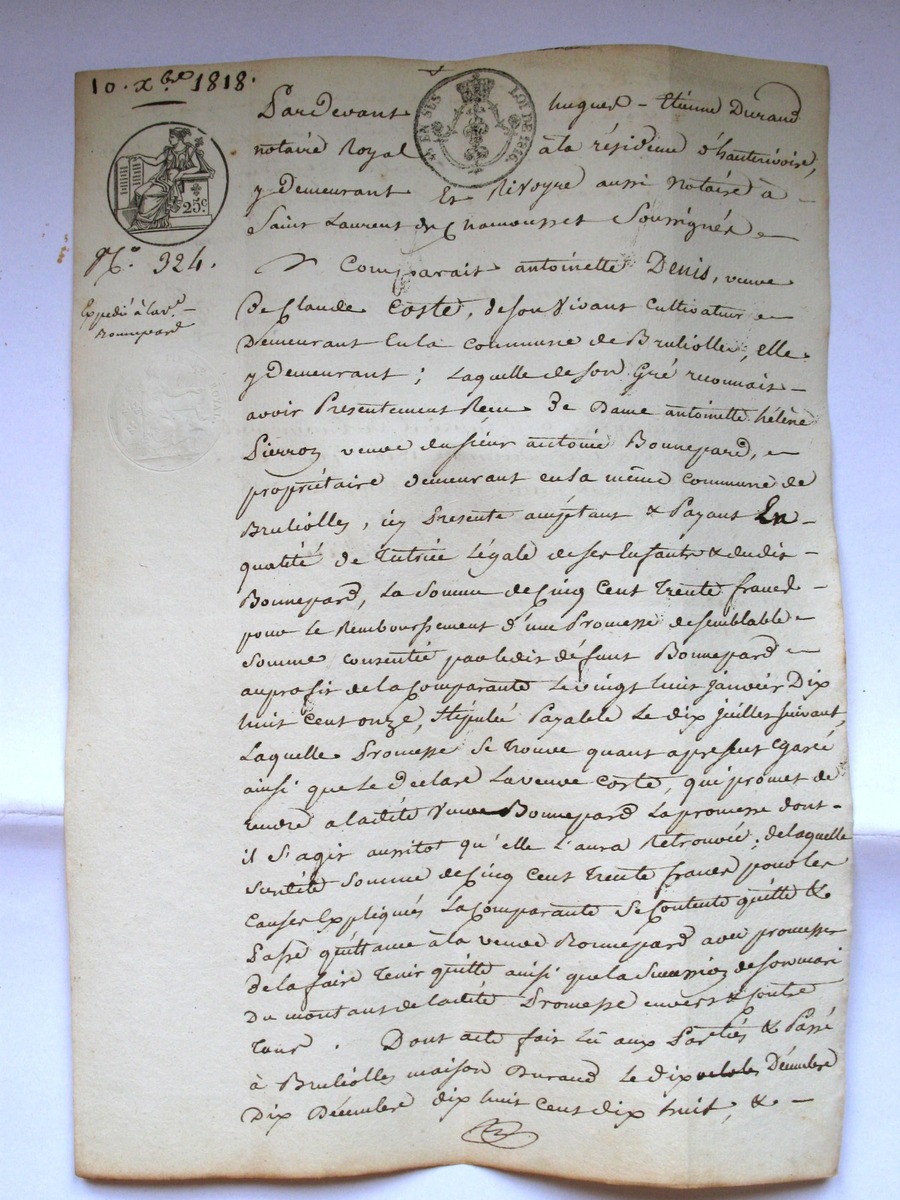 10. xbre 1818.
Pardevant hugues - Etienne Durand
EN SUS
LOI DE 1816
notaire Royal à la résidence d'hauterivoire,
25c
y Demeurant Et Rivoyre aussi notaire à
Saint Laurent de Chamousset Soussignés
No. 324.
Comparait antoinette Denis, veuve
Expédié à la ve.
Bonnepard
De Claude Coste, de son Vivant Cultivateur
Demeurant En la Commune de Brullolles, elle
y Demeurant ; Laquelle de Son Gré reconnait
avoir Presentement Recu De Dame antoinette hélène
Pierron veuve du sieur antoine Bonnepard,
propriétaire demeurant en la même Commune de
Brullolles, icy Presente acceptant & Payant En
qualité de Tutrice Légale de ses Enfants & dudit
Bonnepard, La Somme de Cinq Cent Trente francs
pour le Remboursement d'une Promesse de semblable
Somme consentie par ledit défunt Bonnepard
au profit de la Comparante Le vingt huit janvier Dix
huit Cent onze, stipulée Payable Le dix juillet suivant,
Laquelle Promesse se trouve quant apresent Egaré
ainsi que Le déclare La veuve Coste, qui promet de
rendre a ladite Veuve Bonnepard La promesse dont
il s'agit aussitot qu'elle L'aura Retrouvée ; de laquelle
susdite Somme de Cinq Cent Trente francs pour les
Causes Expliquées La Comparante Se Contente quitte &
Passe quittance à la veuve Bonnepard avec promesse
de la faire Tenir quitte ainsi que la Succession de son mari
Du montant de ladite Promesse envers & Contre
Tous . Dont acte fait Lû aux Parties & Passé
à Brullolles maison Durand le dix Décembre
Dix Décembre dix huit Cent dix huit, &